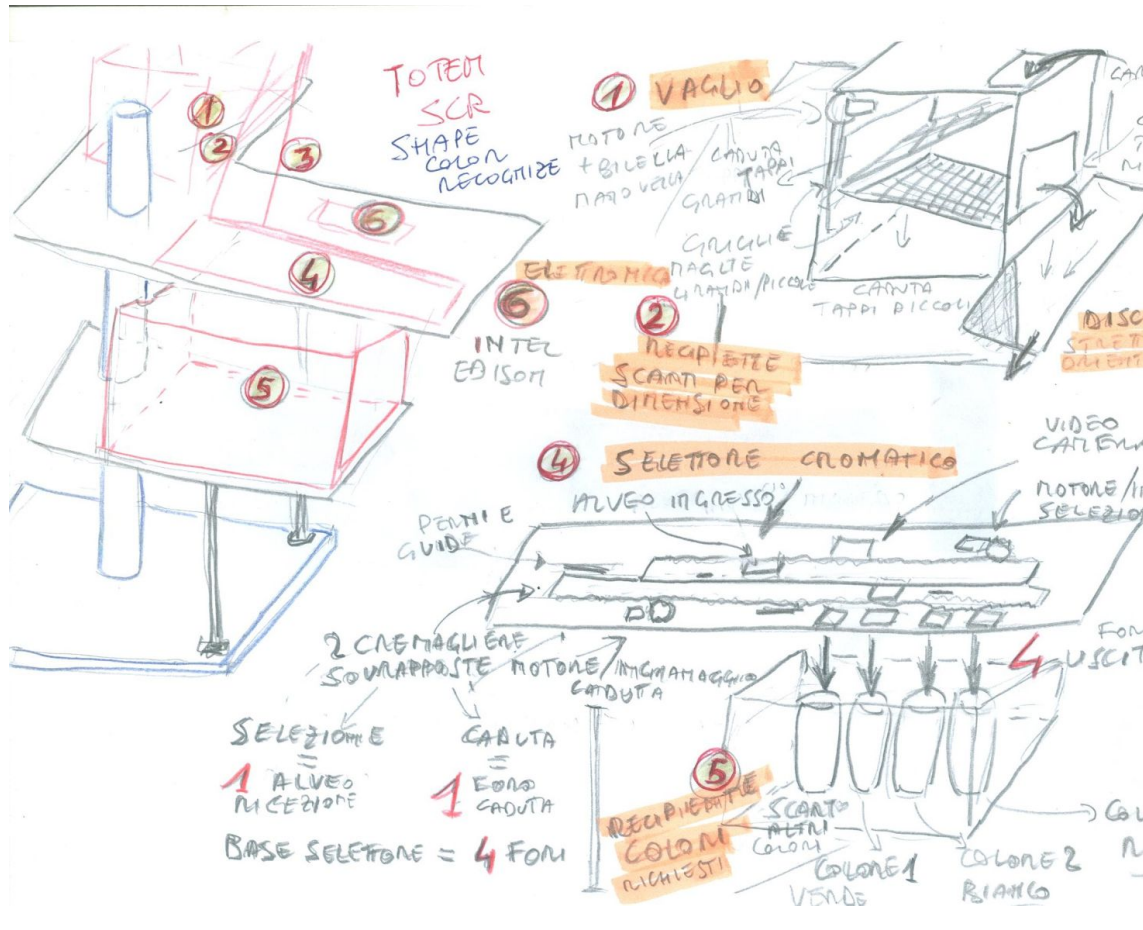 TOTEM
SCR
SHAPE
COLOR
RECOGNIZE
1
2
3
6
4
5
1 VAGLIO
MOTORE
+ BIELLA
MANOVELLA
CADUTA
TAPPI
GRANDI
GRIGLIE
MAGLIE
GRANDI/PICCOLE
CADUTA
TAPPI PICCOLI
ELETTRONICA
6
INTEL
EDISON
2
RECIPIENTE
SCARTI PER
DIMENSIONE
DISC
STRETT
4 SELETTORE CROMATICO
ALVEO INGRESSO
VIDEO
CAMERA
MOTORE/IN
SELEZION
PERNI E
GUIDE
2 CREMAGLIERE
SOVRAPPOSTE
MOTORE/INGRANAGGIO
CADUTA
4 FORI
USCIT
SELEZIONE
=
1 ALVEO
RICEZIONE
CADUTA
=
1 FORO
CADUTA
BASE SELETTORE = 4 FORI
5
RECIPIENTE
COLORI
RICHIESTI
SCARTO
ALTRI
COLORI
COLORE 1
VERDE
COLORE 2
BIANCO
COL